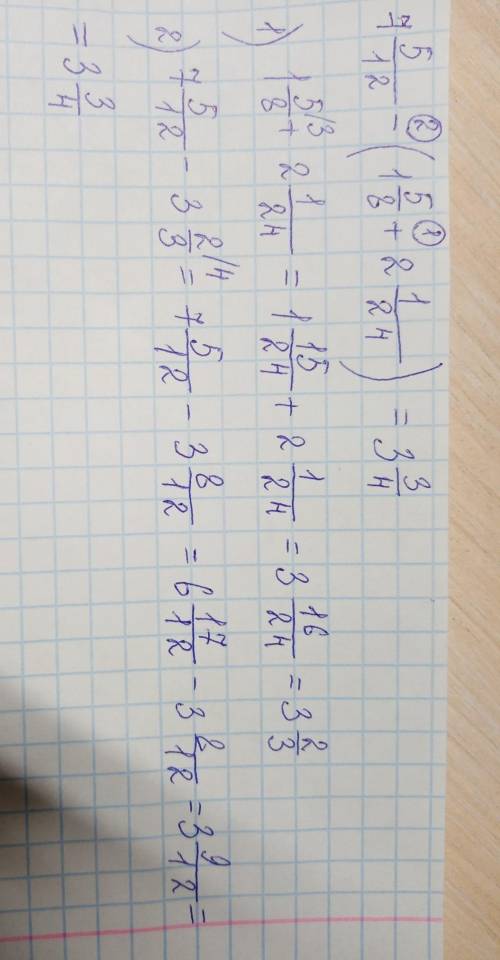 7 5/12 - ② (1 5/8 + ① 2 1/24) = 3 3/4
1) 1 5/8 /3 + 2 1/24 = 1 15/24 + 2 1/24 = 3 16/24 = 3 2/3
2) 7 5/12 - 3 2/3 /4 = 7 5/12 - 3 8/12 = 6 17/12 - 3 8/12 = 3 9/12 =
= 3 3/4